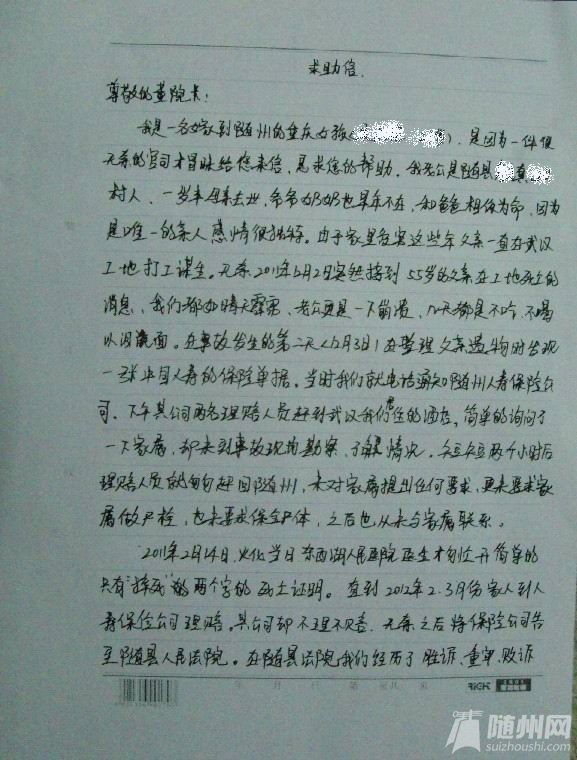 求助信.
尊敬的董院长:
我是一名嫁到随州的重庆女孩( ), 是因为一件很
无奈的官司才冒昧给您来信, 恳求您的帮助. 我老公是随县 真
村人、一岁半母亲去世, 爷爷奶奶也早年不在, 和爸爸相依为命, 因为
是唯一的亲人感情很独特. 由于家里负案这些年父亲一直在武汉
工地打工谋生. 无奈2011年6月2日突然接到55岁的父亲在工地死亡的
消息, 我们都如晴天霹雳, 老公更是一下崩溃, 几天都是不吃、不喝
以泪洗面. 在事故发生的第二天(6月3日)在整理父亲遗物时发现
一张中国人寿的保险单据. 当时我们就电话通知随州人寿保险公
司. 下午其公司两名理赔人员赶到武汉我们居住的酒店, 简单的询问了
一下家属, 却未到事故现场勘察、了解情况. 短短两个小时后
理赔人员就匆匆赶回随州, 未对家属提出任何要求, 更未要求家
属做尸检, 也未要求保全尸体, 之后也从未与家属联系.
2011年2月14日, 火化当日东西湖人民医院医生才勾性开简单的
只有“摔死”的两个字的死亡证明. 直到2012年2.3月份家人到人
寿保险公司理赔. 其公司却不理不睬. 无奈之后将保险公司告
至随县人民法院. 在随县法院我们经历了胜诉、重审、败诉
年 月 日 第 页 共 页
RICH
随州网
suizhoushi.com